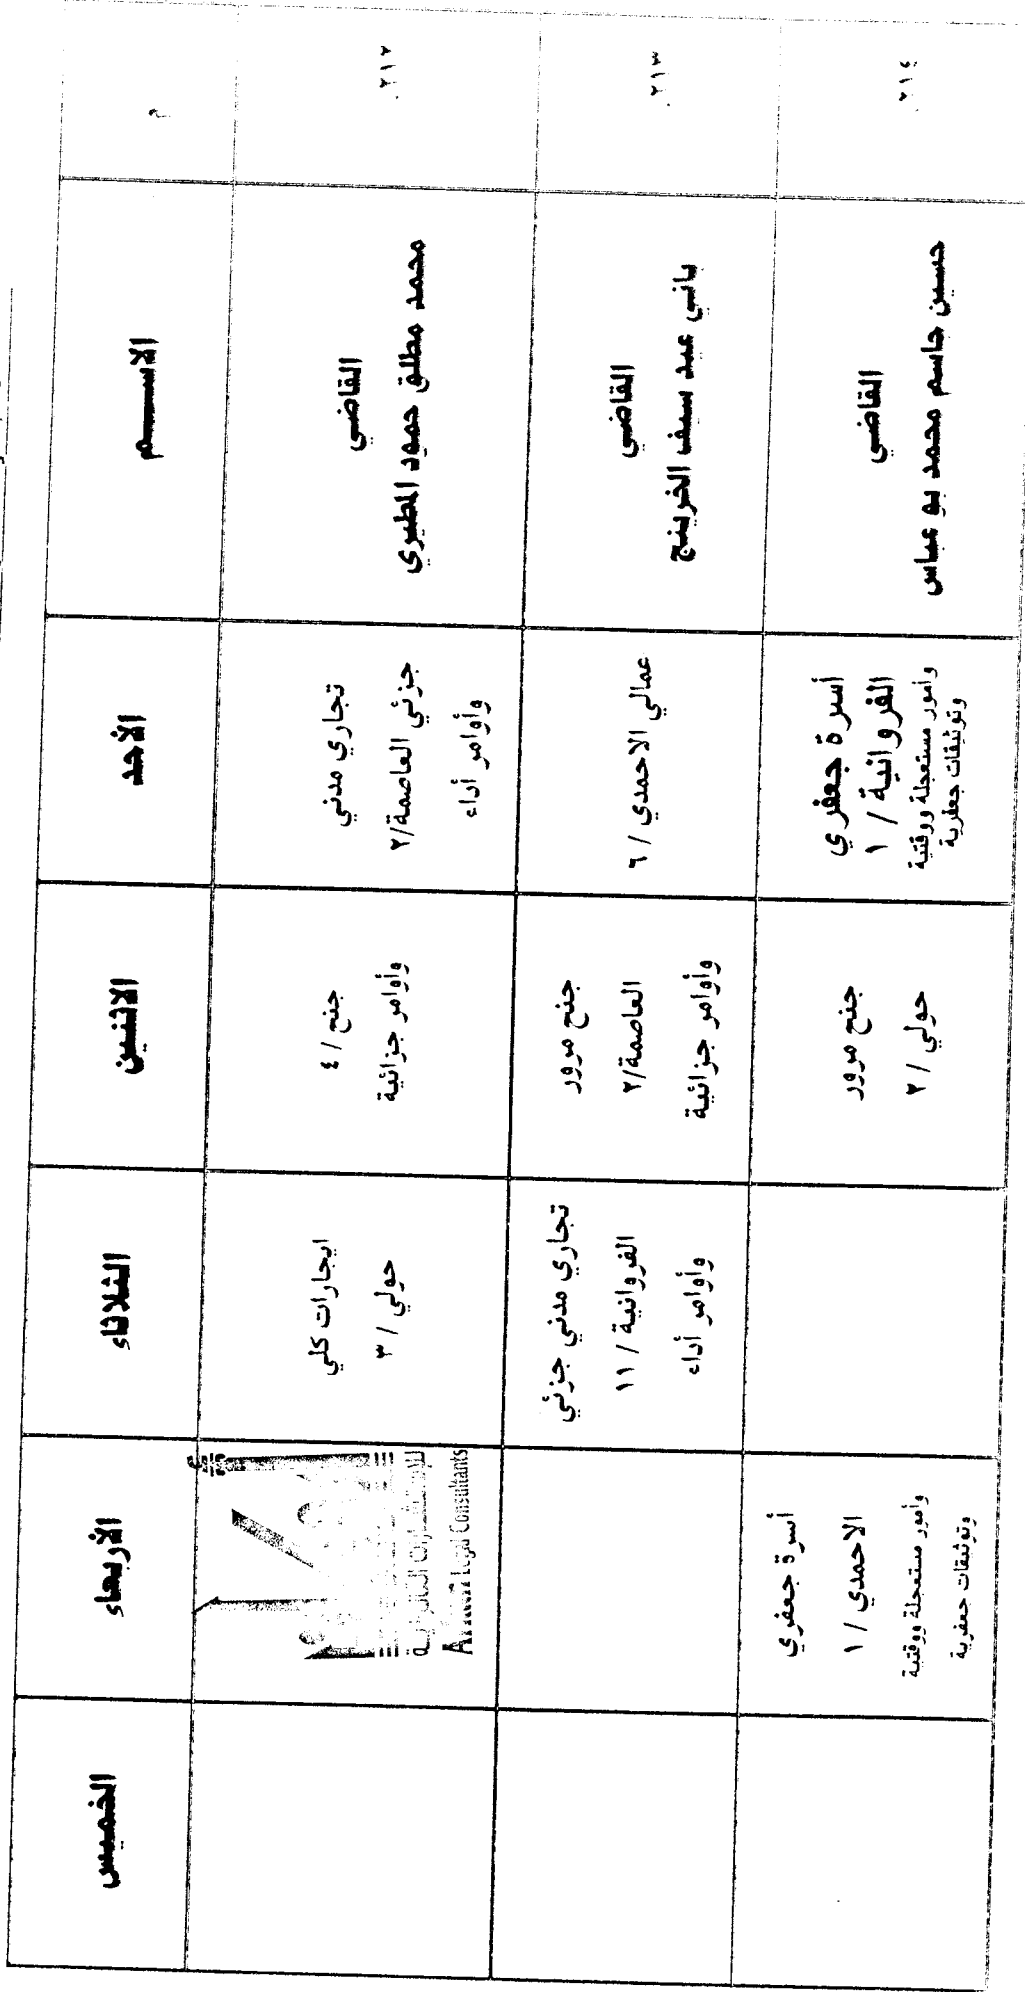 م
الاســـــم
الأحد
الاثنين
الثلاثاء
الأربعاء
الخميس
٢١٢.
القاضي
محمد مطلق حمود المطيري
تجاري مدني
جزئي العاصمة/٢
وأوامر أداء
جنح / ٤
وأوامر جزائية
ايجارات كلي
حولي / ٣
للإستشارات القانونية
Legal Consultants
٢١٣.
القاضي
هاني عبد سيف الخرينج
عمالي الاحمدي / ٦
جنح مرور
العاصمة/٢
وأوامر جزائية
تجاري مدني جزئي
الفروانية / ١١
وأوامر أداء
٢١٤.
القاضي
حسين جاسم محمد بو عباس
أسرة جعفري
الفروانية / ١
وأمور مستعجلة ووقتية
وتوثيقات جعفرية
جنح مرور
حولي / ٢
أسرة جعفري
الاحمدي / ١
وأمور مستعجلة ووقتية
وتوثيقات جعفرية